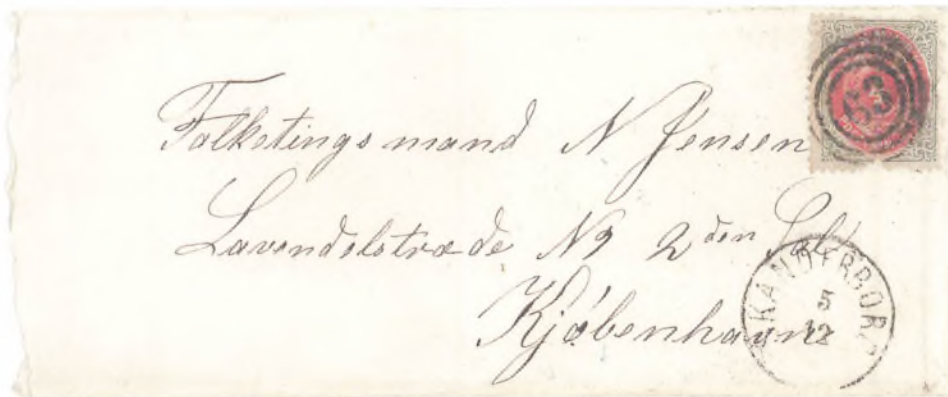 63
Folketingsmand N Jensen
Lavendelstræde N 9 2den Sal
Kjøbenhavn
SKANDERBORG
5
12